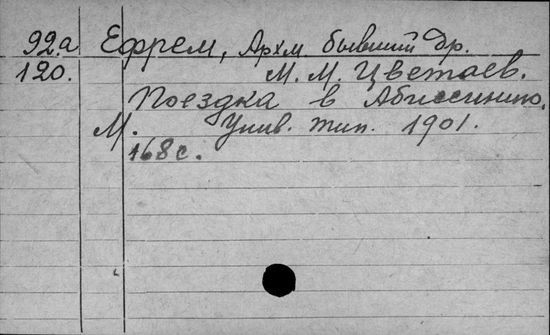 92.a Ефрем, Архм бывший др.
120. М. М. Цветаев.
Поездка в Абиссинию,
М. Унив. тип. 1901.
168 с.